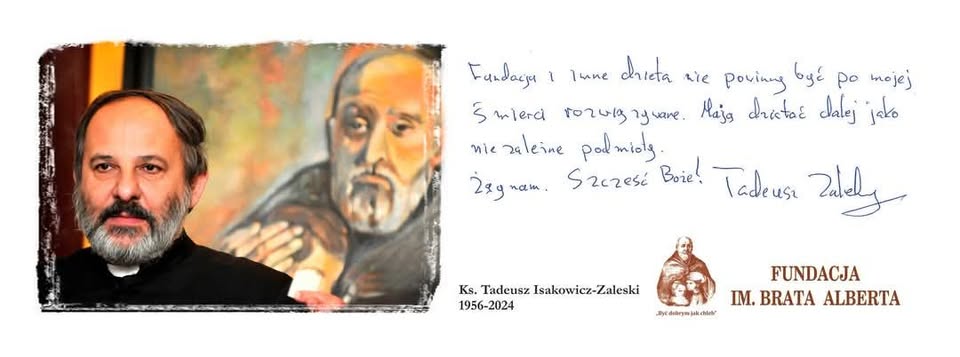 Fundacja i inne dzieła nie powinny być po mojej
śmierci rozwiązywane. Mają działać dalej jako
niezależne podmioty.
Żegnam. Szczęść Boże! Tadeusz Zaleski
Ks. Tadeusz Isakowicz-Zaleski
1956-2024
„Być dobrym jak chleb"
FUNDACJA
IM. BRATA ALBERTA